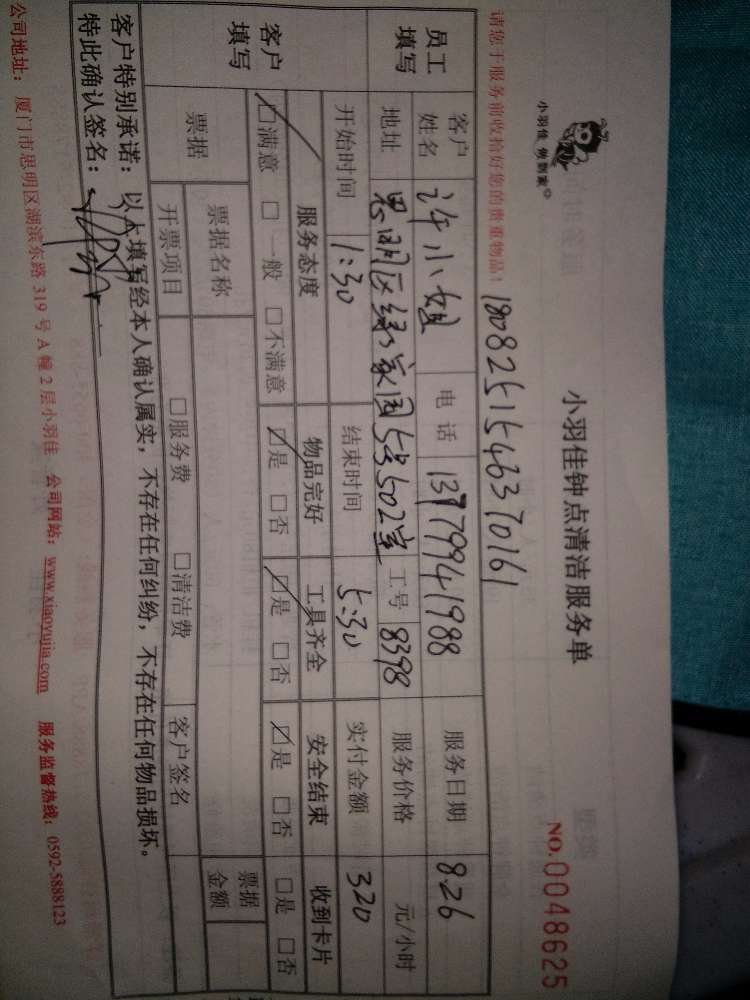 小羽佳 做到家
小羽佳钟点清洁服务单
NO.0048625
请您于服务前收拾好您的贵重物品！
1808251546370161
员工填写
客户姓名 许小姐 电话 13779941988 服务日期 8.26
地址 思明区绿家园53502室 工号 8398 服务价格 元/小时
开始时间 1:30 结束时间 5:30 实付金额 320
客户填写
服务态度 物品完好 工具齐全 安全结束 收到卡片
☑满意 □一般 □不满意 ☑是 □否 ☑是 □否 ☑是 □否 □是 □否
票据 票据名称 票据金额
开票项目 □服务费 □清洁费 客户签名
客户特别承诺：以上填写经本人确认属实，不存在任何纠纷，不存在任何物品损坏。
特此确认签名：
公司地址：厦门市思明区湖滨东路 319 号 A 幢 2 层小羽佳 公司网站：www.xiaoyujia.com 服务监督热线：0592-5888123